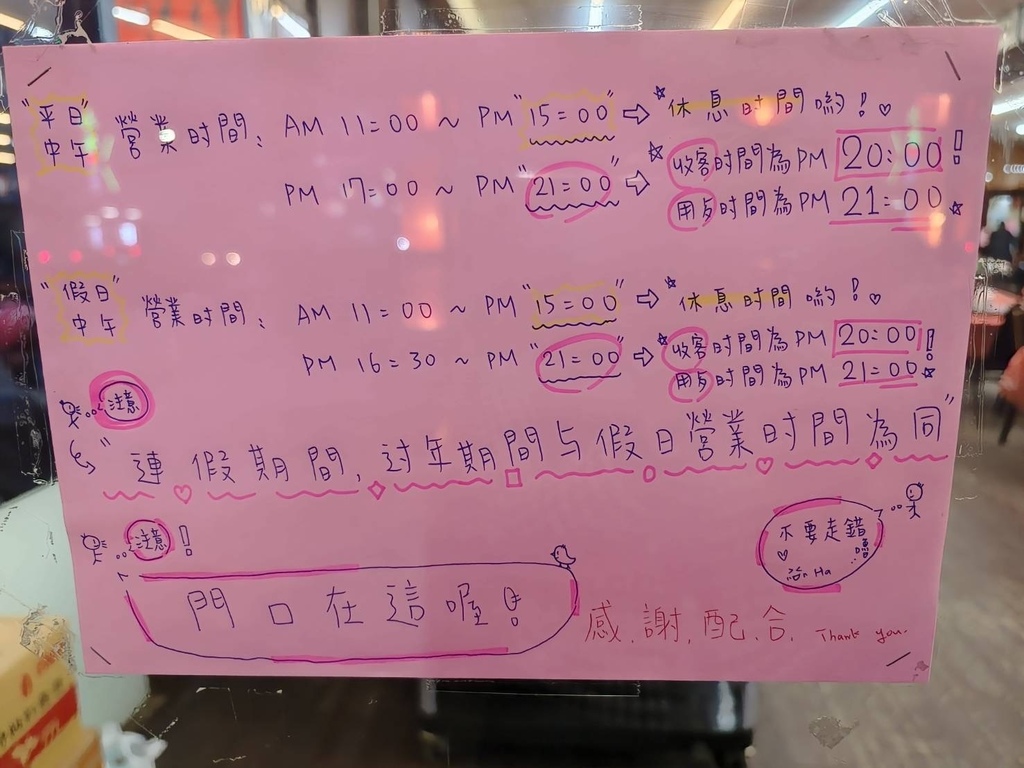 "平日" 營業时間: AM 11:00 ~ PM "15:00" ⇨ ☆休息时間喲!♡
中午
PM 17:00 ~ PM "21:00" ⇨ ☆收客时間為PM 20:00!
用歺时間為PM 21:00☆
"假日" 營業时間: AM 11:00 ~ PM "15:00" ⇨ ☆休息时間喲!♡
中午
PM 16:30 ~ PM "21:00" ⇨ ☆收客时間為PM 20:00!
用歺时間為PM 21:00☆
注意
"連假期間,过年期間与假日營業时間為同"
注意!
不要走錯
嚕
哈 Ha
門口在這喔!
感.謝.配.合. Thank you.